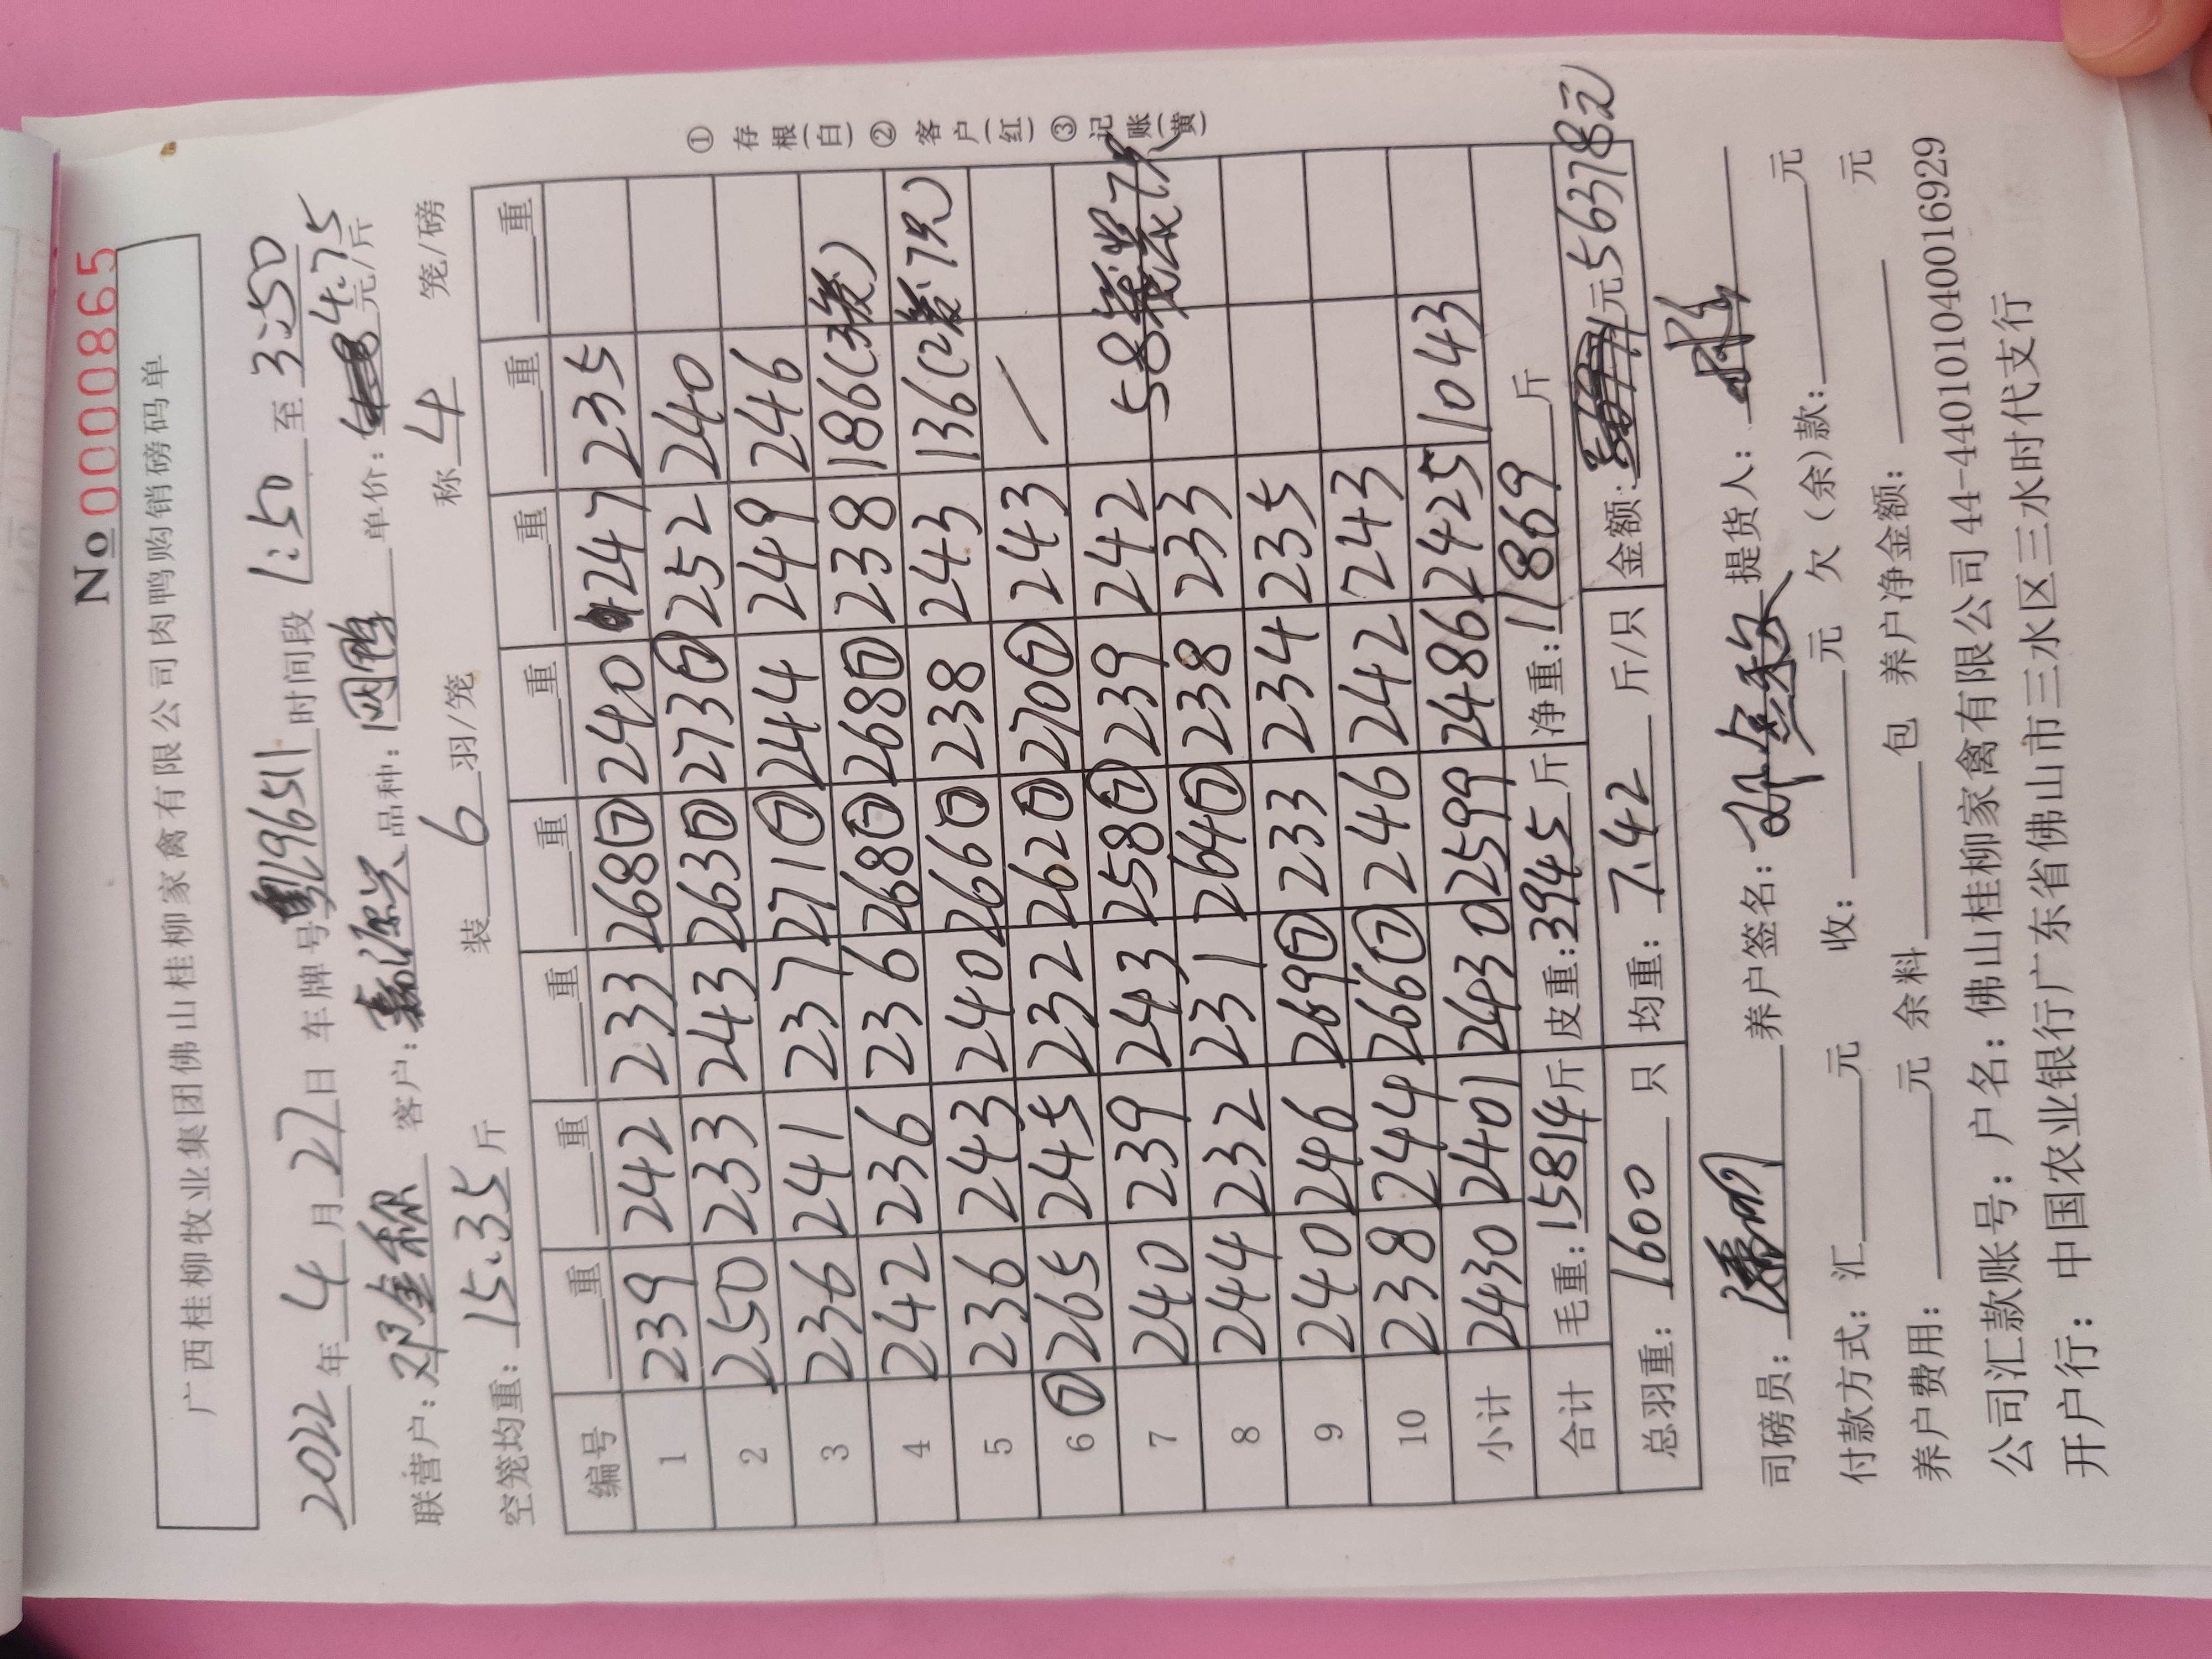 No 0000865
广西桂柳牧业集团佛山桂柳家禽有限公司肉鸭购销磅码单
2022年4月27日 车牌号 时间段1:50至3:50
联营户:邓金稳 客户:嘉源兴 品种:网鸭 单价:4.75元/斤
空笼均重:15.35斤 装6羽/笼 称4笼/磅
编号 重 重 重 重 重 重 重 重
1 239 242 233 268⑦ 240 247 235
2 250 233 243 263⑦ 273⑦ 252 240
3 236 241 237 271⑦ 244 249 246
4 242 236 236 268⑦ 268⑦ 238 186(3笼)
5 236 243 240 266⑦ 238 243 136(2笼7只)
6 ⑦265 245 232 262⑦ 270⑦ 243 /
7 240 239 243 258⑦ 239 242 58笼装7只
8 244 232 231 264⑦ 238 233
9 240 246 269⑦ 233 234 235
10 238 244 266⑦ 246 242 243
小计 2430 2401 2430 2599 2486 2425 1043
合计 毛重:15814斤 皮重:3945斤 净重:11869斤
总羽重:1600只 均重:7.42斤/只 金额:元56378元
①存根(白)②客户(红)③记账(黄)
司磅员: 养户签名:邓金稳 提货人:
付款方式:汇 元 收: 元 欠(余)款: 元
养户费用: 元 余料 包 养户净金额: 元
公司汇款账号:户名:佛山桂柳家禽有限公司44-440101040016929
开户行:中国农业银行广东省佛山市三水区三水时代支行